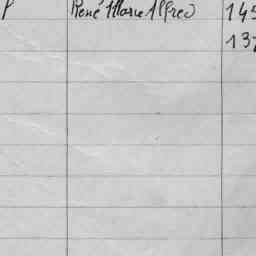 René Marie Alfred 145
137